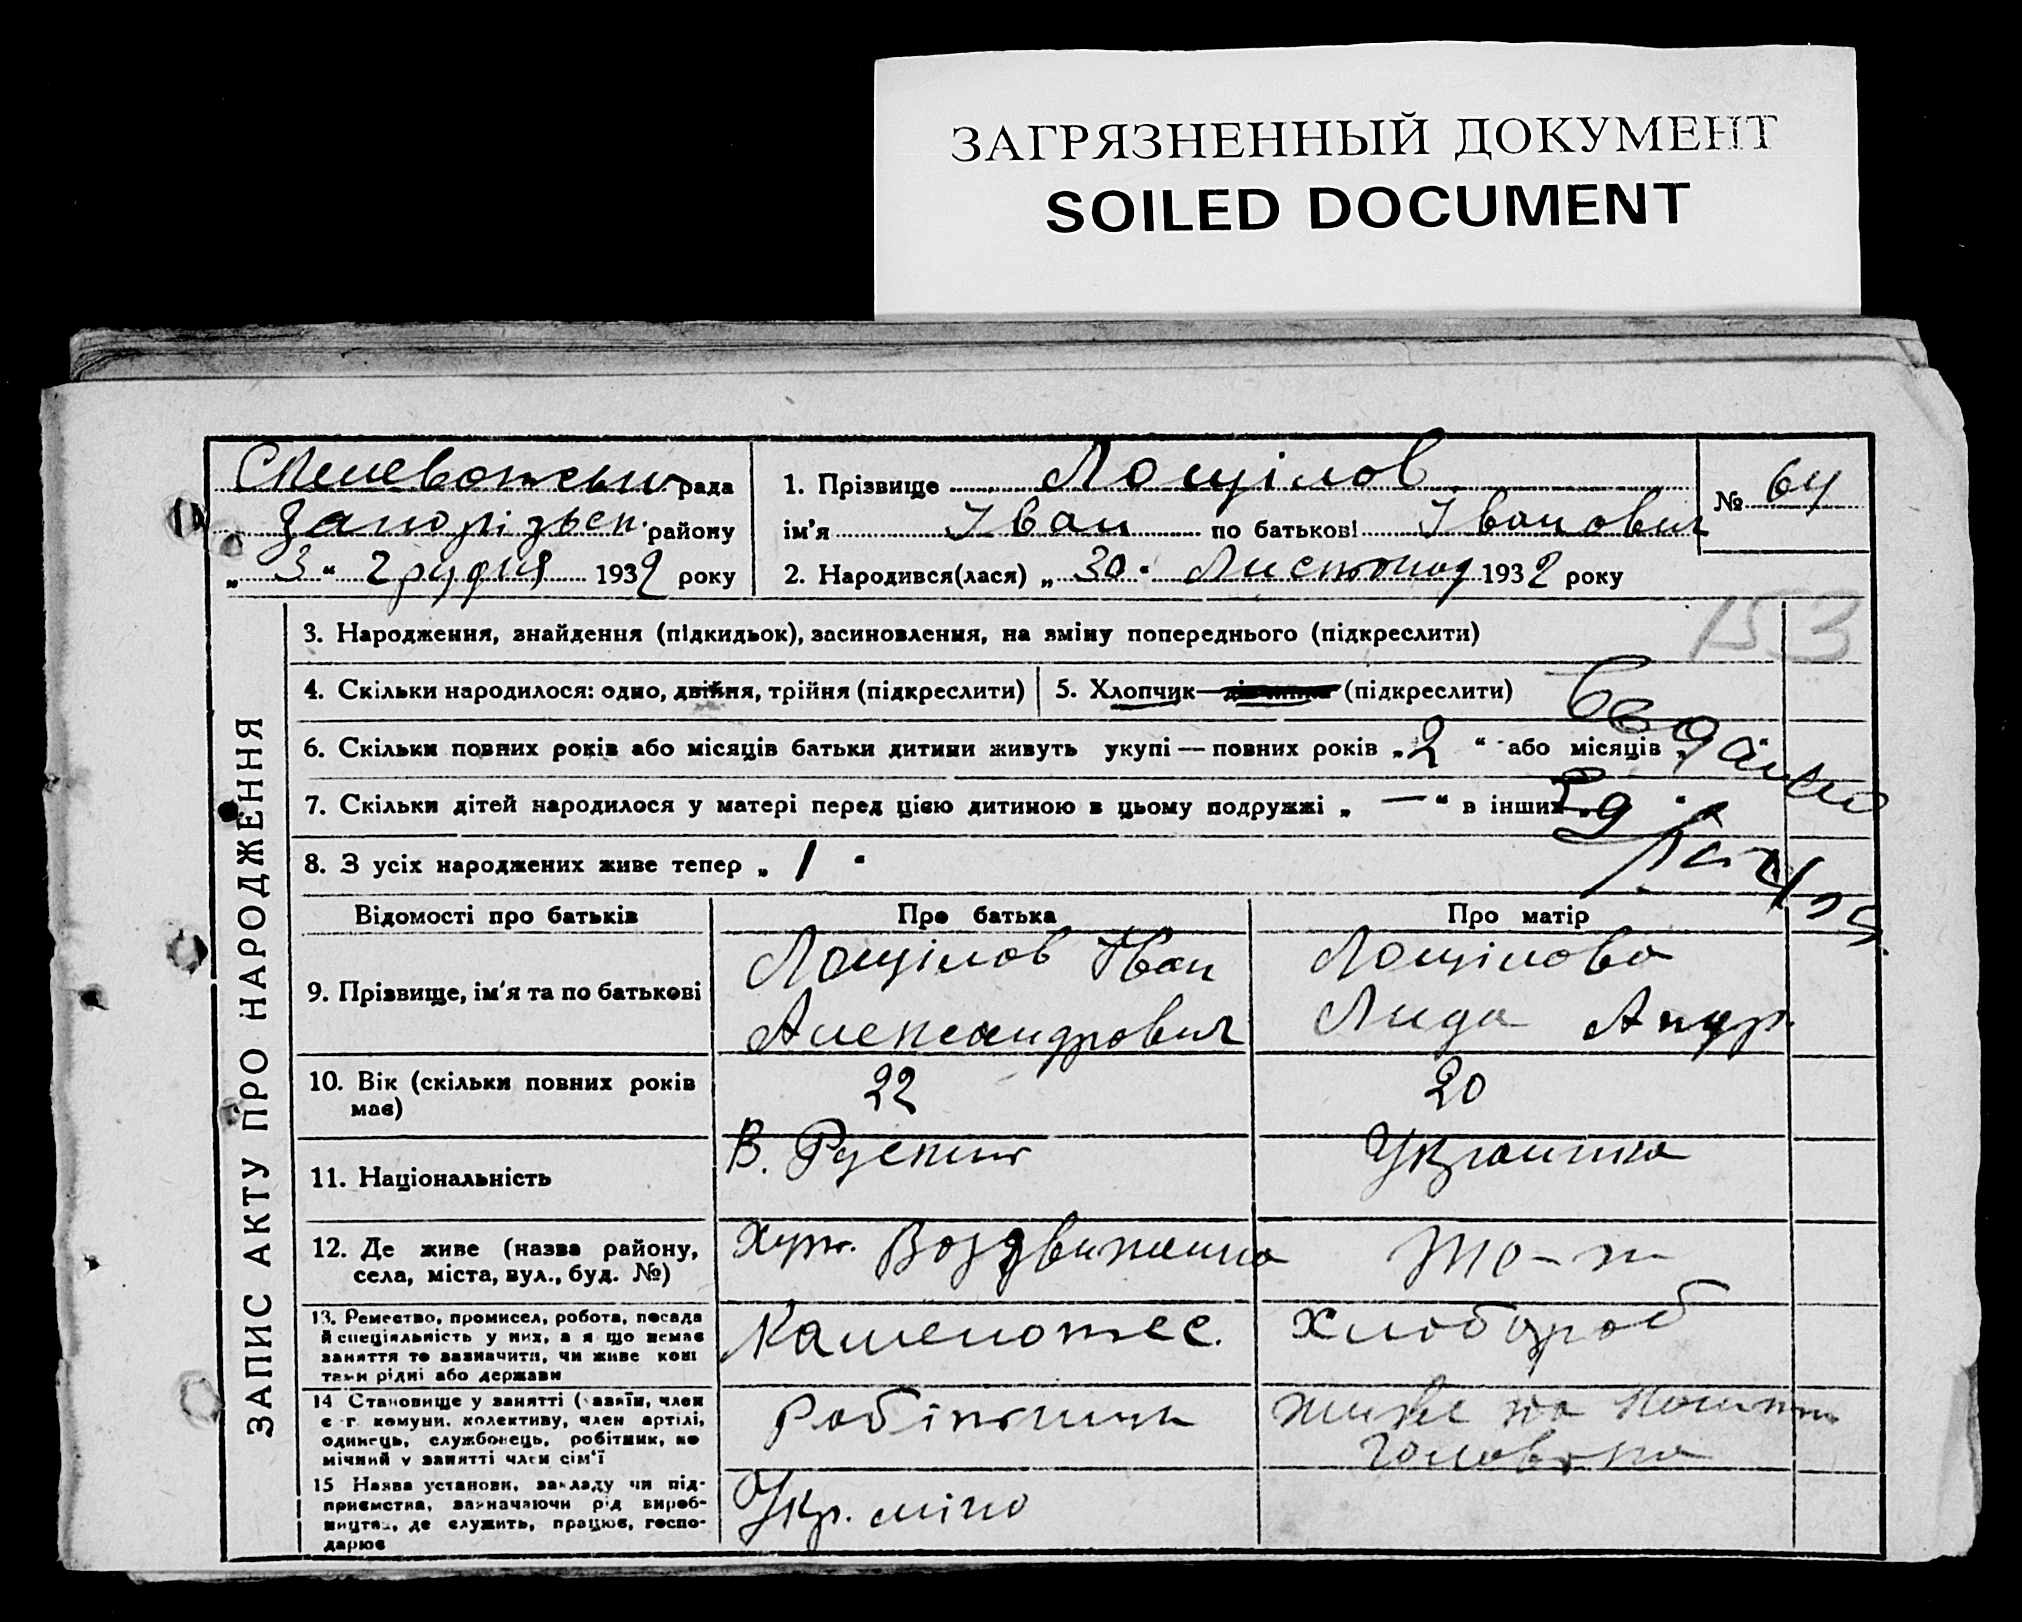 ЗАГРЯЗНЕННЫЙ ДОКУМЕНТ
SOILED DOCUMENT
рада
Запорізьк. району
„3“ Грудня 1932 року
1. Прізвище Лощілов
ім'я Іван по батькові Іванович
2. Народився(лася) „30“ Листопад 1932 року
№ 64
153
ЗАПИС АКТУ ПРО НАРОДЖЕННЯ
3. Народження, знайдення (підкидьок), засиновлення, на зміну попереднього (підкреслити)
4. Скільки народилося: одно, двійня, трійня (підкреслити)
5. Хлопчик—дівчинка (підкреслити)
6. Скільки повних років або місяців батьки дитини живуть укупі — повних років „2“ або місяців „
7. Скільки дітей народилося у матері перед цією дитиною в цьому подружжі „—“ в інших
8. З усіх народжених живе тепер „1“
Відомості про батьків
Про батька
Про матір
9. Прізвище, ім'я та по батькові
Лощілов Іван
Александрович
Лощілова
Лида Андр.
10. Вік (скільки повних років
має)
22
20
11. Національність
В. Руский
Украинка
12. Де живе (назва району,
села, міста, вул., буд. №)
Хут. Воздвиженка
то-ж
13. Ремество, промисел, робота, посада
й спеціяльність у них, а я що немає
заняття то зазначити, чи живе кош
тами рідні або держави
Каменотес.
хлобороб
14 Становище у занятті (хазяїн, член
с-г. комуни, колективу, член артілі,
одинець, службовець, робітник, по
мічний у занятті член сім'ї
Робітник
живе на кошти
головока
15 Назва установи, закладу чи під-
приємства, зазначаючи рід вироб-
ництва, де служить, працює, госпо-
дарює
Укр.